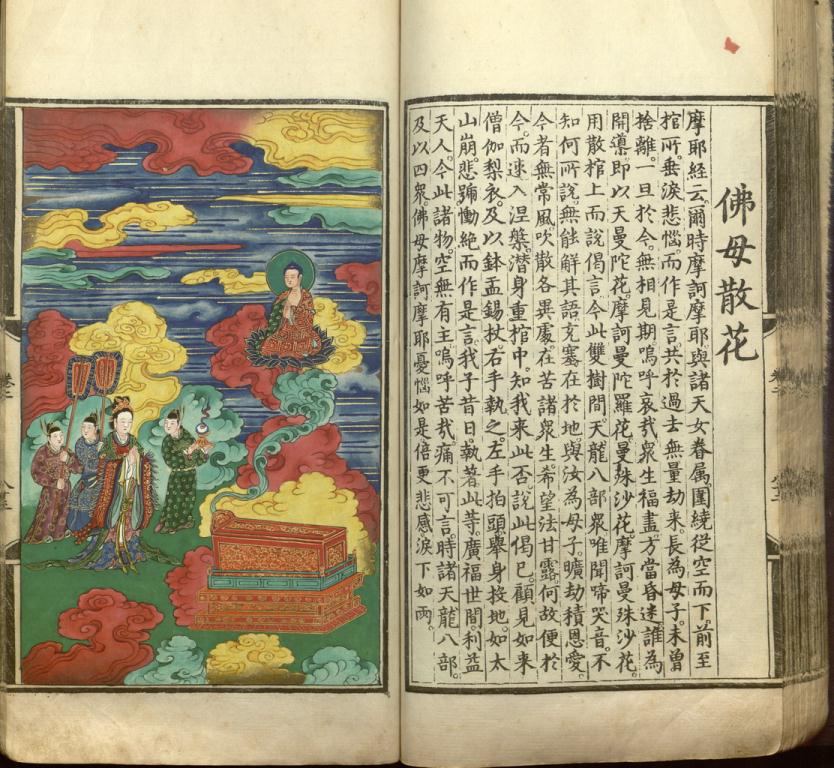 佛母散花
摩耶經云。爾時摩訶摩耶與諸天女眷屬圍繞從空而下。前至
棺所。垂淚悲惱。而作是言。共於過去無量劫來。長為母子。未曾
捨離。一旦於今。無相見期。嗚呼哀哉。衆生福盡。方當昏迷。誰為
開導。即以天曼陀花。摩訶曼陀羅花。曼殊沙花。摩訶曼殊沙花。
用散棺上而說偈言。今此雙樹間。天龍八部衆。唯聞啼哭音。不
知何所說。無能解其語。充塞在於地。與汝為母子。曠劫積恩愛。
今者無常風。吹散各異處。在苦諸衆生。希望法甘露。何故便於
今。而速入涅槃。潛身重棺中。知我來此否。說此偈已。顧見如來
僧伽梨衣。及以鉢盂錫杖。右手執之。左手拍頭。舉身投地。如太
山崩。悲號慟絕。而作是言。我子昔日。執著此等。廣福世間。利益
天人。今此諸物。空無有主。嗚呼苦哉。痛不可言。時諸天龍八部。
及以四衆。佛母摩訶摩耶。憂惱如是。倍更悲感。淚下如雨。